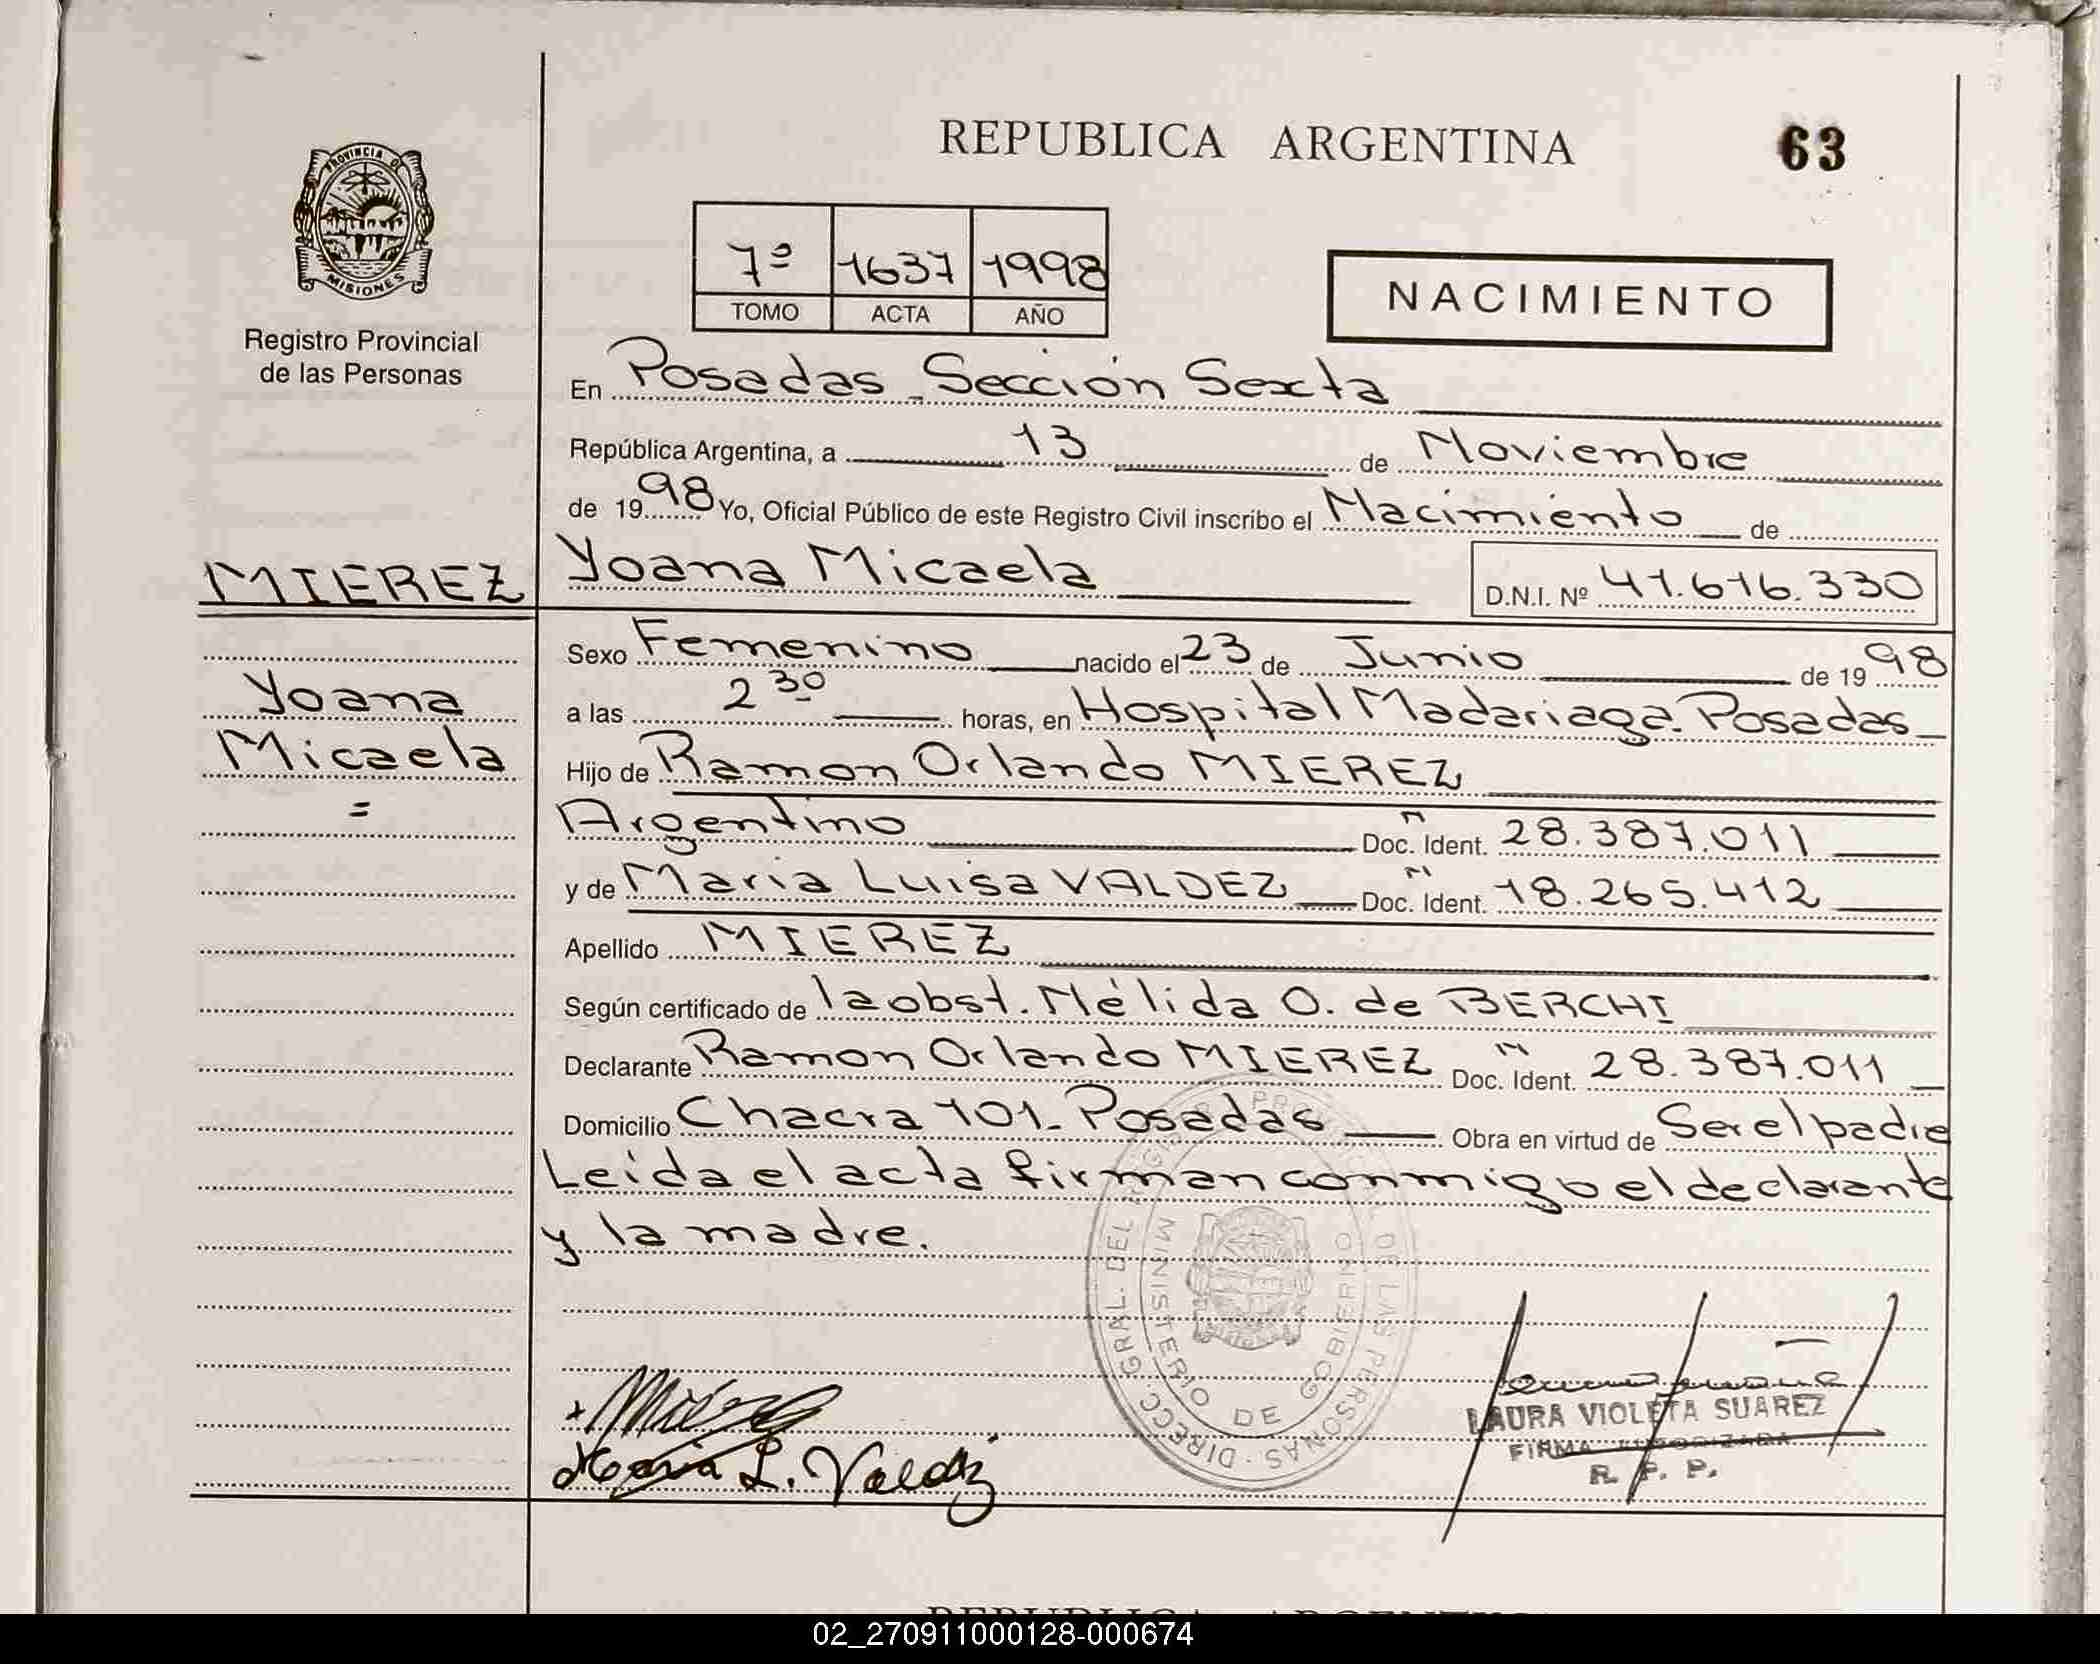 REPUBLICA ARGENTINA
63
PROVINCIA DE
MISIONES
Registro Provincial
de las Personas
7º 1637 1998
TOMO ACTA AÑO
NACIMIENTO
En Posadas - Sección Sexta
República Argentina, a 13 de Noviembre
de 1998 Yo, Oficial Público de este Registro Civil inscribo el Nacimiento de
MIEREZ
Yoana Micaela
D.N.I. Nº 41.616.330
Yoana
Micaela
=
Sexo Femenino nacido el 23 de Junio de 1998
a las 2 30 horas, en Hospital Madariaga. Posadas
Hijo de Ramon Orlando MIEREZ
Argentino Doc. Ident. 28.387.011
y de Maria Luisa VALDEZ Doc. Ident. 18.265.412
Apellido MIEREZ
Según certificado de la obst. Nélida O. de BERCHI
Declarante Ramon Orlando MIEREZ Doc. Ident. 28.387.011
Domicilio Chacra 101 - Posadas Obra en virtud de Ser el padre
Leida el acta firman conmigo el declarante
y la madre.
DIRECC. GRAL. DEL REGISTRO PROVINCIAL DE LAS PERSONAS
MINISTERIO DE GOBIERNO
Maria L. Valdez
LAURA VIOLETA SUAREZ
FIRMA AUTORIZADA
R. P. P.
REPUBLICA ARGENTINA
02_270911000128-000674